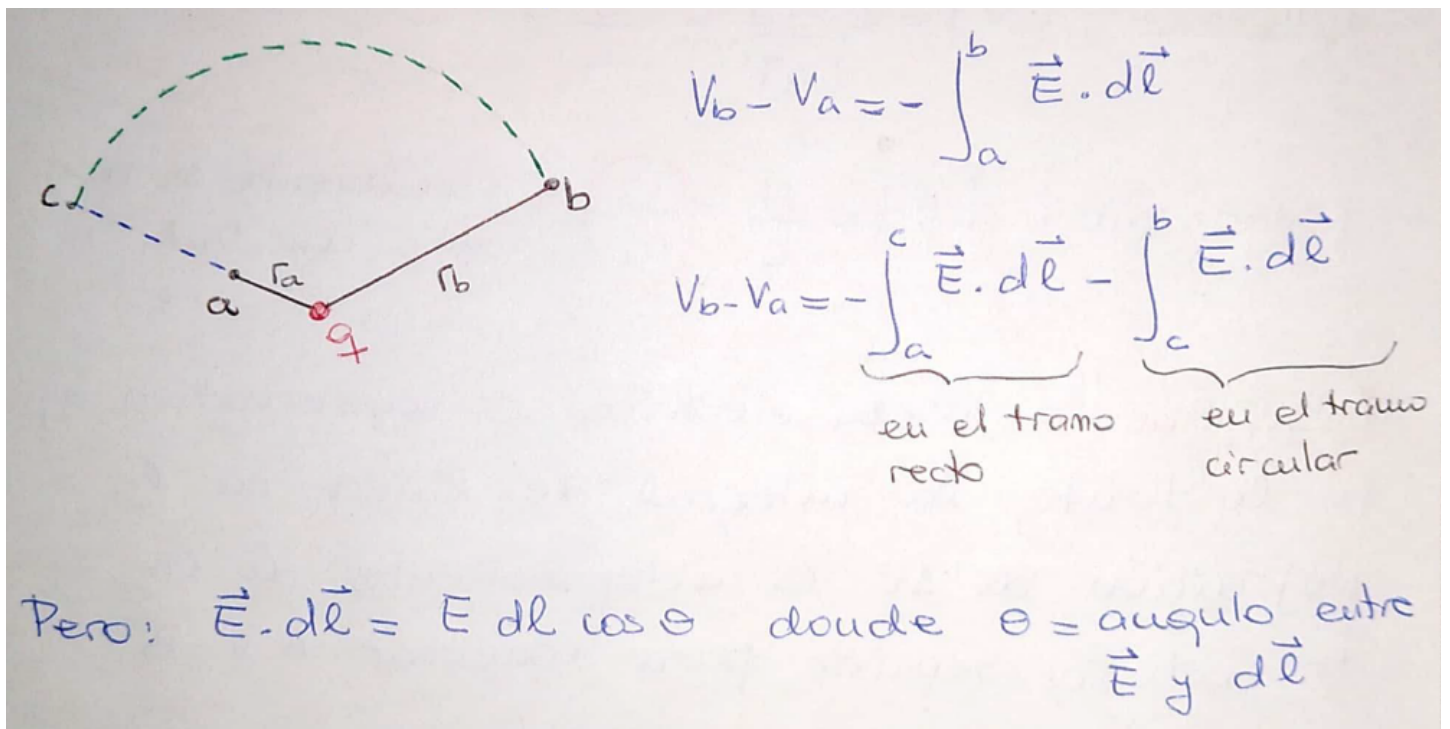 c
b
a
ra
rb
q
Vb - Va = - ∫ₐᵇ E⃗ . dl⃗
Vb - Va = - ∫ₐᶜ E⃗ . dl⃗ - ∫꜀ᵇ E⃗ . dl⃗
en el tramo
recto
en el tramo
circular
Pero: E⃗ . dl⃗ = E dl cos θ donde θ = angulo entre
E⃗ y dl⃗